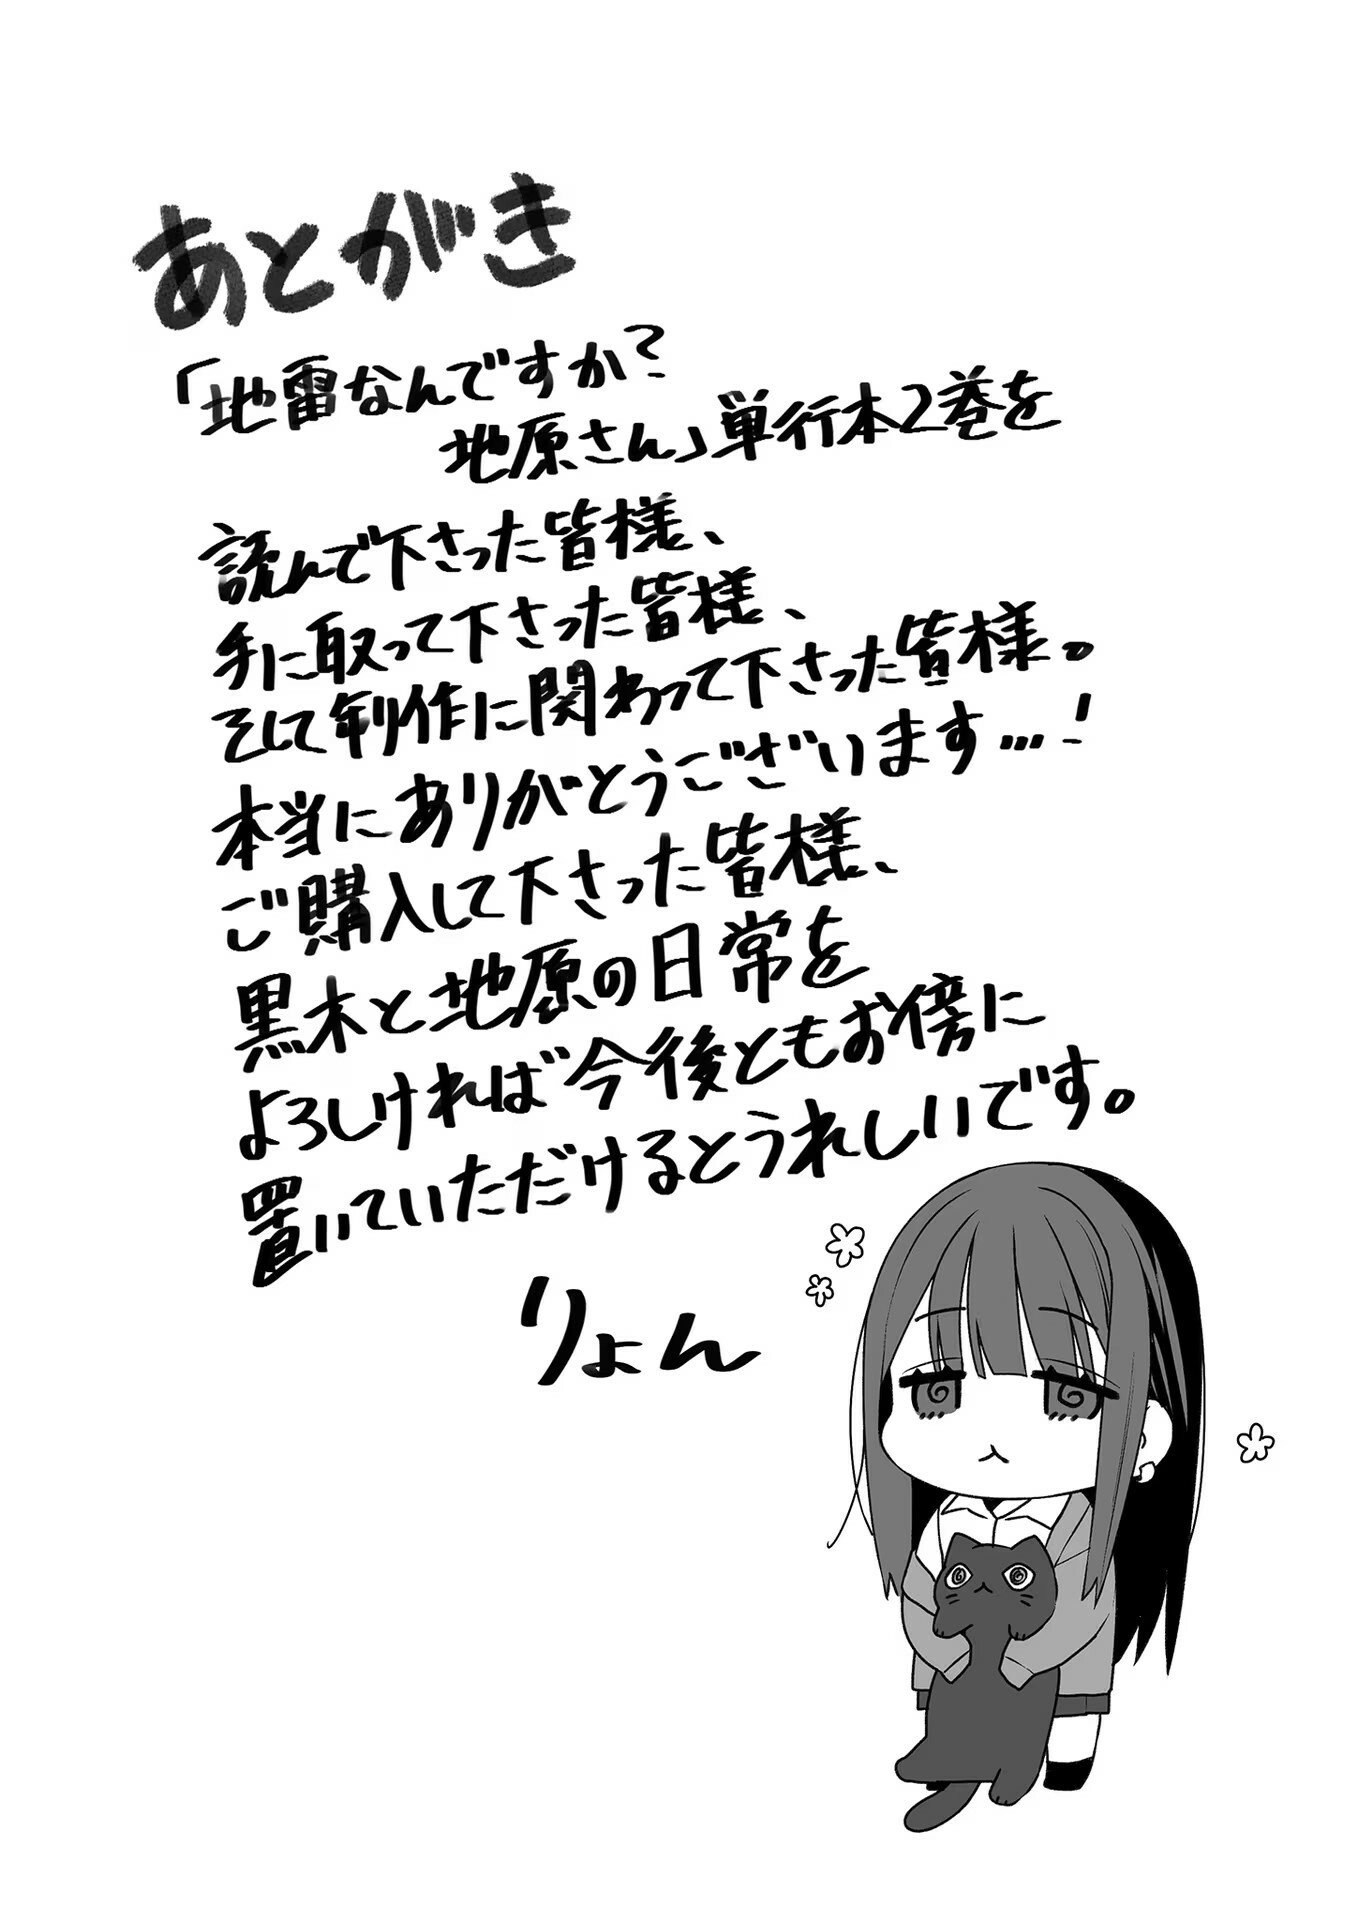 あとがき
「地雷なんですか?
地原さん」単行本2巻を
読んで下さった皆様、
手に取って下さった皆様、
そして制作に関わって下さった皆様。
本当にありがとうございます…!
ご購入して下さった皆様、
黒木と地原の日常を
よろしければ今後ともお傍に
置いていただけるとうれしいです。
りょん